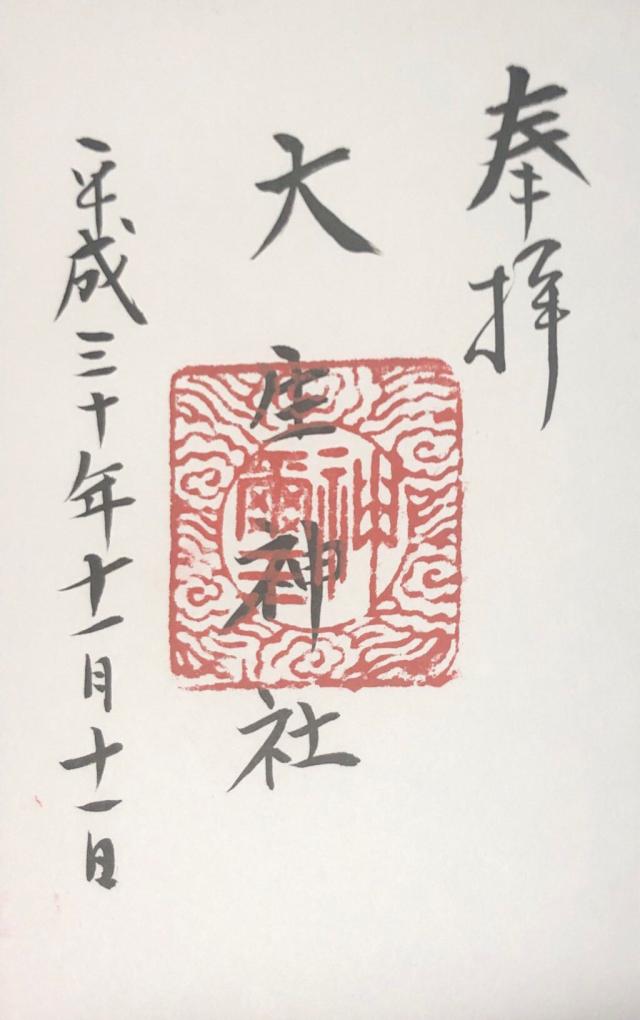 奉拝
大座神社
平成三十年十一月十一日